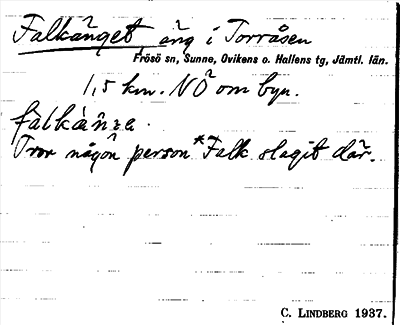 Falkänget äng i Torråsen
Frösö sn, Sunne, Ovikens o. Hallens tg, Jämtl. län.
1,5 km. NÖ om byn.
Tror någon person *Falk slagit där.
C. LINDBERG 1937.